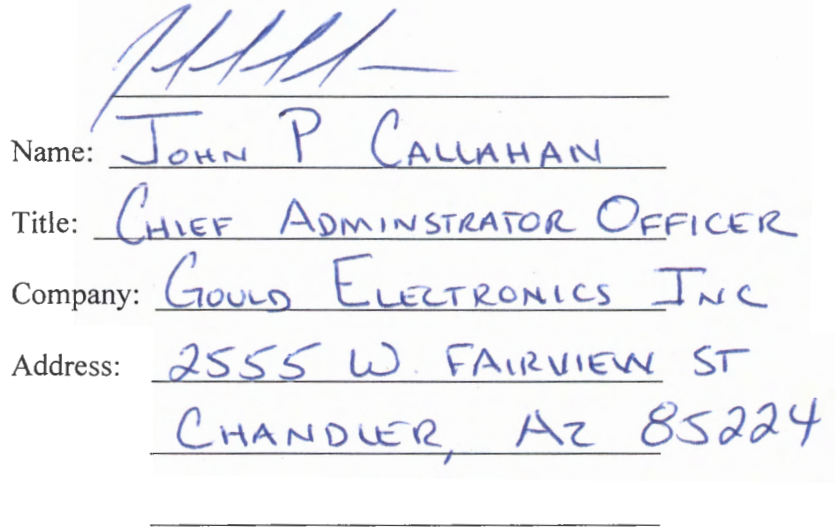 Name: JOHN P CALLAHAN
Title: CHIEF ADMINSTRATOR OFFICER
Company: GOULD ELECTRONICS INC
Address: 2555 W. FAIRVIEW ST
CHANDLER, AZ 85224